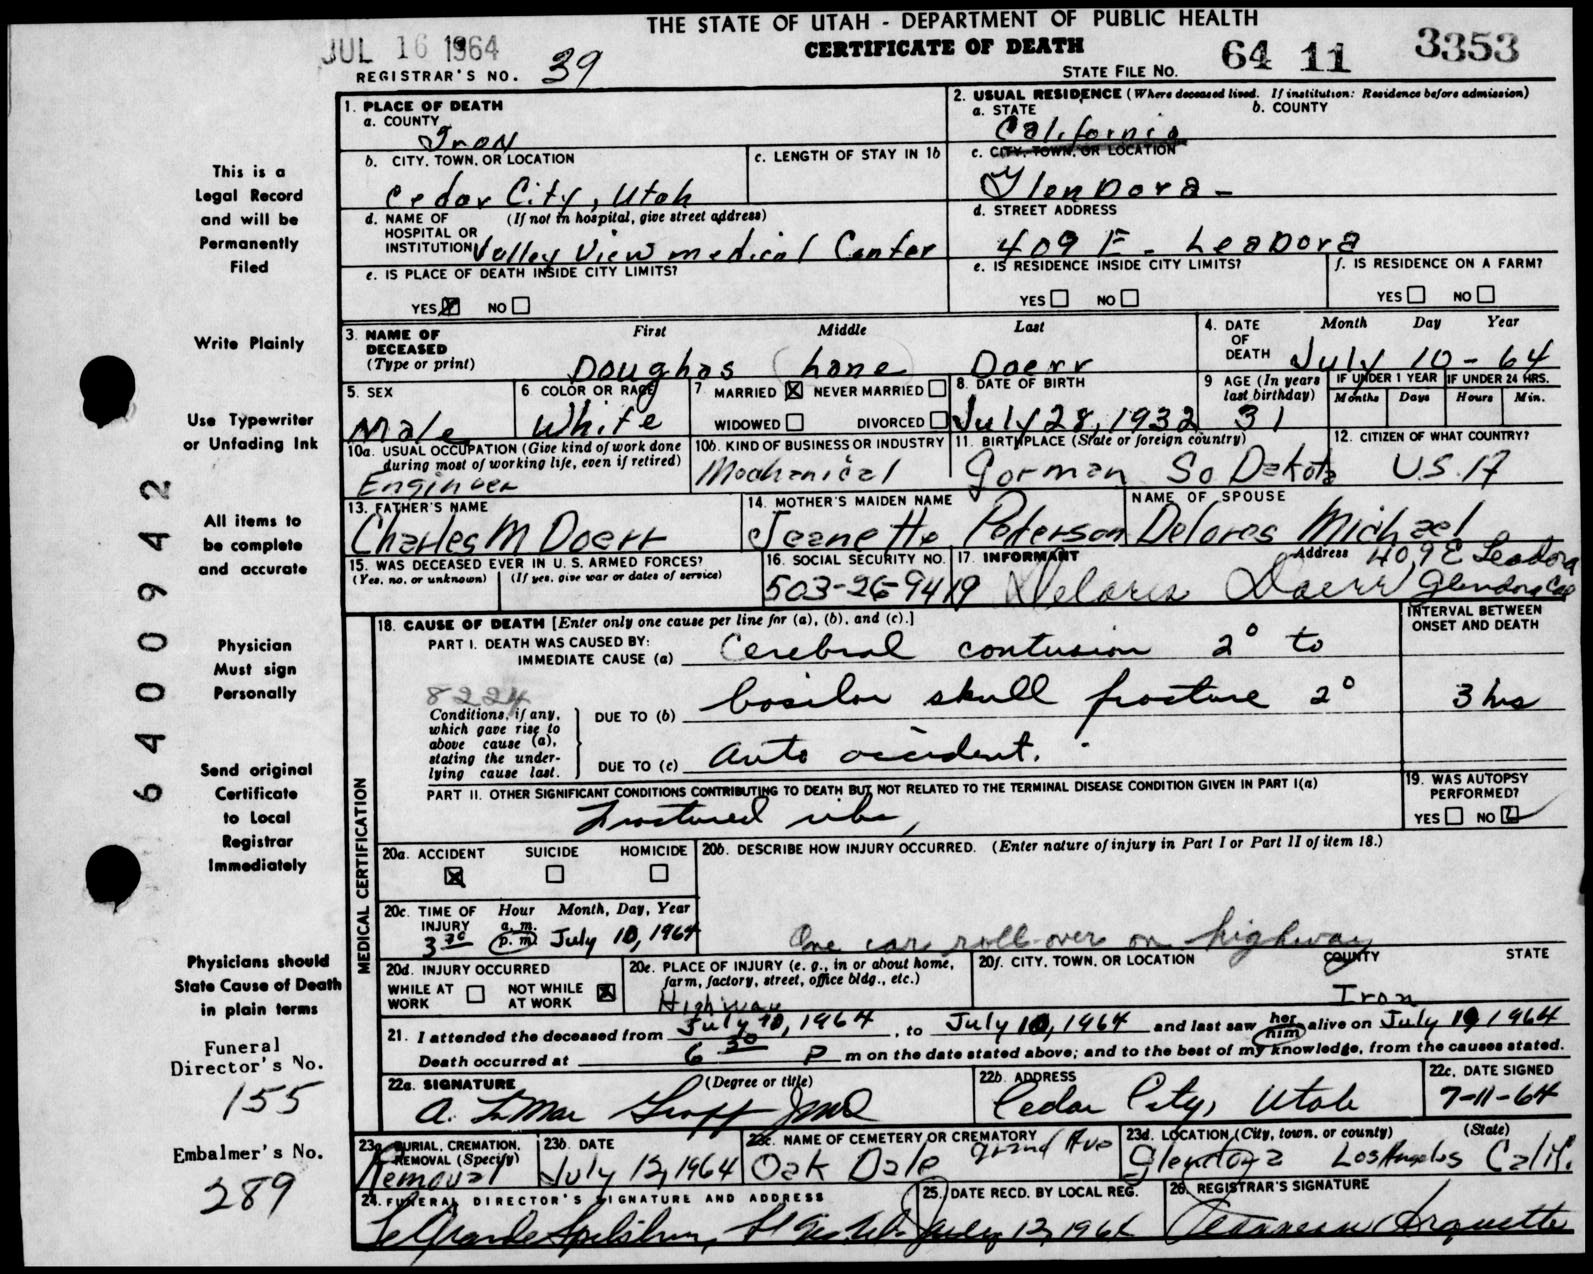 THE STATE OF UTAH - DEPARTMENT OF PUBLIC HEALTH
JUL 16 1964
CERTIFICATE OF DEATH
64 11 3353
REGISTRAR'S NO. 39
STATE FILE NO.
1. PLACE OF DEATH
a. COUNTY
Iron
2. USUAL RESIDENCE (Where deceased lived. If institution: Residence before admission)
a. STATE
b. COUNTY
California
b. CITY, TOWN, OR LOCATION
Cedar City, Utah
c. LENGTH OF STAY IN 1b
c. CITY, TOWN, OR LOCATION
GlenDora -
d. NAME OF HOSPITAL OR INSTITUTION
(If not in hospital, give street address)
Valley View medical Center
d. STREET ADDRESS
409 E - LeaDora
e. IS PLACE OF DEATH INSIDE CITY LIMITS?
YES NO
e. IS RESIDENCE INSIDE CITY LIMITS?
YES NO
f. IS RESIDENCE ON A FARM?
YES NO
3. NAME OF DECEASED
(Type or print)
First Middle Last
Doughas Lane Doerr
4. DATE OF DEATH
Month Day Year
July 10 - 64
5. SEX
Male
6. COLOR OR RACE
White
7. MARRIED NEVER MARRIED
WIDOWED DIVORCED
8. DATE OF BIRTH
July 28, 1932
9 AGE (In years last birthday)
31
IF UNDER 1 YEAR
Months Days
IF UNDER 24 HRS.
Hours Min.
10a. USUAL OCCUPATION (Give kind of work done during most of working life, even if retired)
Engineer
10b. KIND OF BUSINESS OR INDUSTRY
Mechanical
11. BIRTHPLACE (State or foreign country)
Gorman So Dakota
12. CITIZEN OF WHAT COUNTRY?
U.S.A
13. FATHER'S NAME
Charles M Doerr
14. MOTHER'S MAIDEN NAME
Jeanette Peterson
NAME OF SPOUSE
Delores Michael
15. WAS DECEASED EVER IN U.S. ARMED FORCES?
(Yes, no, or unknown) (If yes, give war or dates of service)
16. SOCIAL SECURITY NO.
503-26-9419
17. INFORMANT
Address
Delores Doerr
409 E Leadora
Glendora Cal
18. CAUSE OF DEATH [Enter only one cause per line for (a), (b), and (c).]
PART I. DEATH WAS CAUSED BY:
IMMEDIATE CAUSE (a) Cerebral contusion 2° to
INTERVAL BETWEEN ONSET AND DEATH
8224
Conditions, if any, which gave rise to above cause (a), stating the underlying cause last.
DUE TO (b) basilar skull fracture 2°
3 hrs
DUE TO (c) auto accident.
PART II. OTHER SIGNIFICANT CONDITIONS CONTRIBUTING TO DEATH BUT NOT RELATED TO THE TERMINAL DISEASE CONDITION GIVEN IN PART I(a)
Fractured ribs,
19. WAS AUTOPSY PERFORMED?
YES NO
MEDICAL CERTIFICATION
20a. ACCIDENT SUICIDE HOMICIDE
20b. DESCRIBE HOW INJURY OCCURRED. (Enter nature of injury in Part I or Part II of item 18.)
One car roll-over on highway
20c. TIME OF INJURY
Hour Month, Day, Year
3 30 a.m. p.m. July 10, 1964
20d. INJURY OCCURRED
WHILE AT WORK NOT WHILE AT WORK
20e. PLACE OF INJURY (e. g., in or about home, farm, factory, street, office bldg., etc.)
Highway
20f. CITY, TOWN, OR LOCATION COUNTY STATE
Iron
21. I attended the deceased from July 10, 1964, to July 10, 1964 and last saw her him alive on July 10 1964
Death occurred at 6 30 P m on the date stated above; and to the best of my knowledge, from the causes stated.
22a. SIGNATURE (Degree or title)
22b. ADDRESS
Cedar City, Utah
22c. DATE SIGNED
7-11-64
23a. BURIAL, CREMATION, REMOVAL (Specify)
Removal
23b. DATE
July 12, 1964
23c. NAME OF CEMETERY OR CREMATORY
Oak Dale Grand Ave
23d. LOCATION (City, town, or county) (State)
Glendora Los Angeles Calif.
24. FUNERAL DIRECTOR'S SIGNATURE AND ADDRESS
25. DATE RECD. BY LOCAL REG.
July 12, 1964
26. REGISTRAR'S SIGNATURE
This is a
Legal Record
and will be
Permanently
Filed
Write Plainly
Use Typewriter
or Unfading Ink
All items to
be complete
and accurate
Physician
Must sign
Personally
Send original
Certificate
to Local
Registrar
Immediately
Physicians should
State Cause of Death
in plain terms
Funeral
Director's No.
155
Embalmer's No.
289
6400942